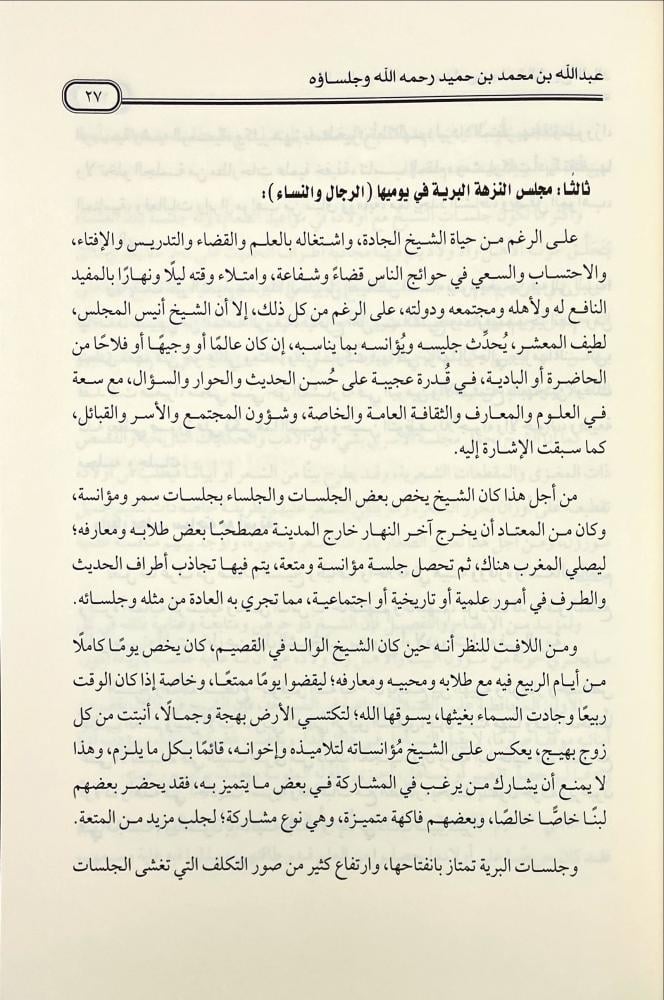 عبدالله بن محمد بن حميد رحمه الله وجلساؤه
٢٧
ثالثًا: مجلس النزهة البرية في يوميها (الرجال والنساء):
على الرغم من حياة الشيخ الجادة، واشتغاله بالعلم والقضاء والتدريس والإفتاء،
والاحتساب والسعي في حوائج الناس قضاءً وشفاعة، وامتلاء وقته ليلًا ونهارًا بالمفيد
النافع له ولأهله ومجتمعه ودولته، على الرغم من كل ذلك، إلا أن الشيخ أنيس المجلس،
لطيف المعشر، يُحدِّث جليسه ويُؤانسه بما يناسبه، إن كان عالمًا أو وجيهًا أو فلاحًا من
الحاضرة أو البادية، في قُدرة عجيبة على حُسن الحديث والحوار والسؤال، مع سعة
في العلوم والمعارف والثقافة العامة والخاصة، وشؤون المجتمع والأسر والقبائل،
كما سبقت الإشارة إليه.
من أجل هذا كان الشيخ يخص بعض الجلسات والجلساء بجلسات سمر ومؤانسة،
وكان من المعتاد أن يخرج آخر النهار خارج المدينة مصطحبًا بعض طلابه ومعارفه؛
ليصلي المغرب هناك، ثم تحصل جلسة مؤانسة ومتعة، يتم فيها تجاذب أطراف الحديث
والطرف في أمور علمية أو تاريخية أو اجتماعية، مما تجري به العادة من مثله وجلسائه.
ومن اللافت للنظر أنه حين كان الشيخ الوالد في القصيم، كان يخص يومًا كاملًا
من أيام الربيع فيه مع طلابه ومحبيه ومعارفه؛ ليقضوا يومًا ممتعًا، وخاصة إذا كان الوقت
ربيعًا وجادت السماء بغيثها، يسوقها الله؛ لتكتسي الأرض بهجة وجمالًا، أنبتت من كل
زوج بهيج، يعكس على الشيخ مُؤانساته لتلاميذه وإخوانه، قائمًا بكل ما يلزم، وهذا
لا يمنع أن يشارك من يرغب في المشاركة في بعض ما يتميز به، فقد يحضر بعضهم
لبنًا خاصًّا خالصًا، وبعضهم فاكهة متميزة، وهي نوع مشاركة؛ لجلب مزيد من المتعة.
وجلسات البرية تمتاز بانفتاحها، وارتفاع كثير من صور التكلف التي تغشى الجلسات